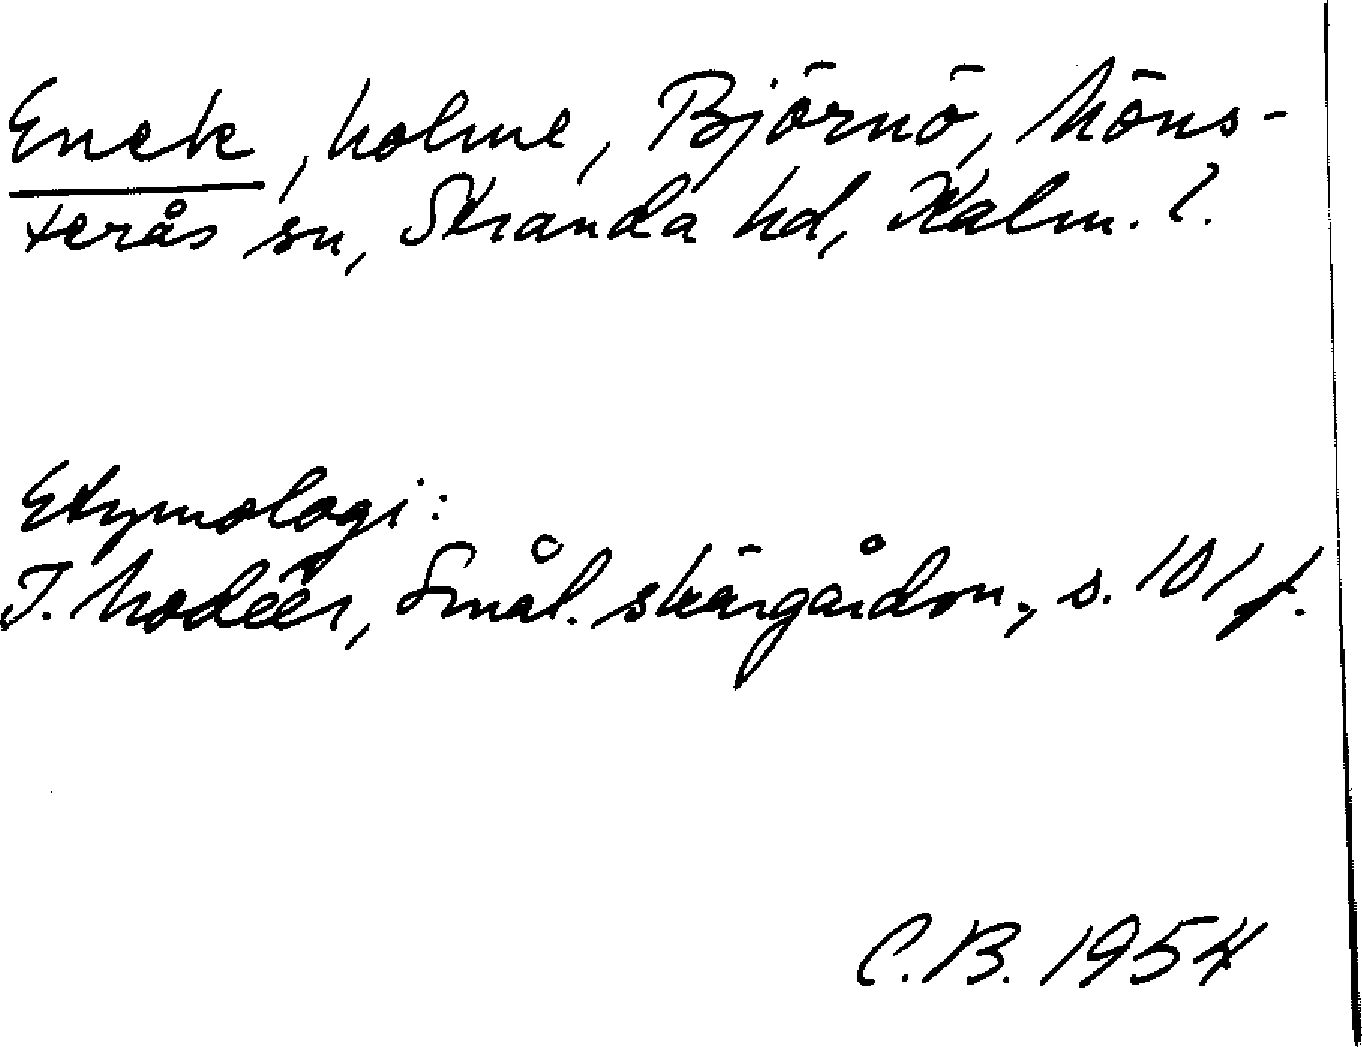 Enek, holme, Björnö, Möns-
terås sn, Stranda hd, Kalm. l.
Etymologi:
I. Modéer, Smål. skärgårdsn., s. 101 f.
C.B. 1954